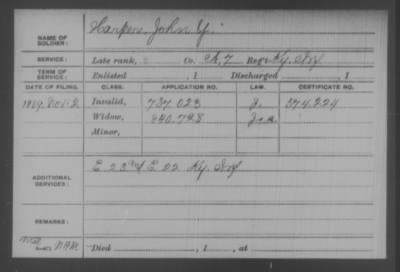 NAME OF SOLDIER: Harper, John Y.
SERVICE: Late rank, Co. A, 7 Reg't Ky. Inf
TERM OF SERVICE: Enlisted , 1 Discharged , 1
DATE OF FILING. CLASS. APPLICATION NO. LAW. CERTIFICATE NO.
1889. Nov. 2 Invalid, 737.023 J. 574.224
Widow, 640.728
Minor,
ADDITIONAL SERVICES: E 23 & E 22 Ky. Inf
REMARKS:
Died , 1 , at